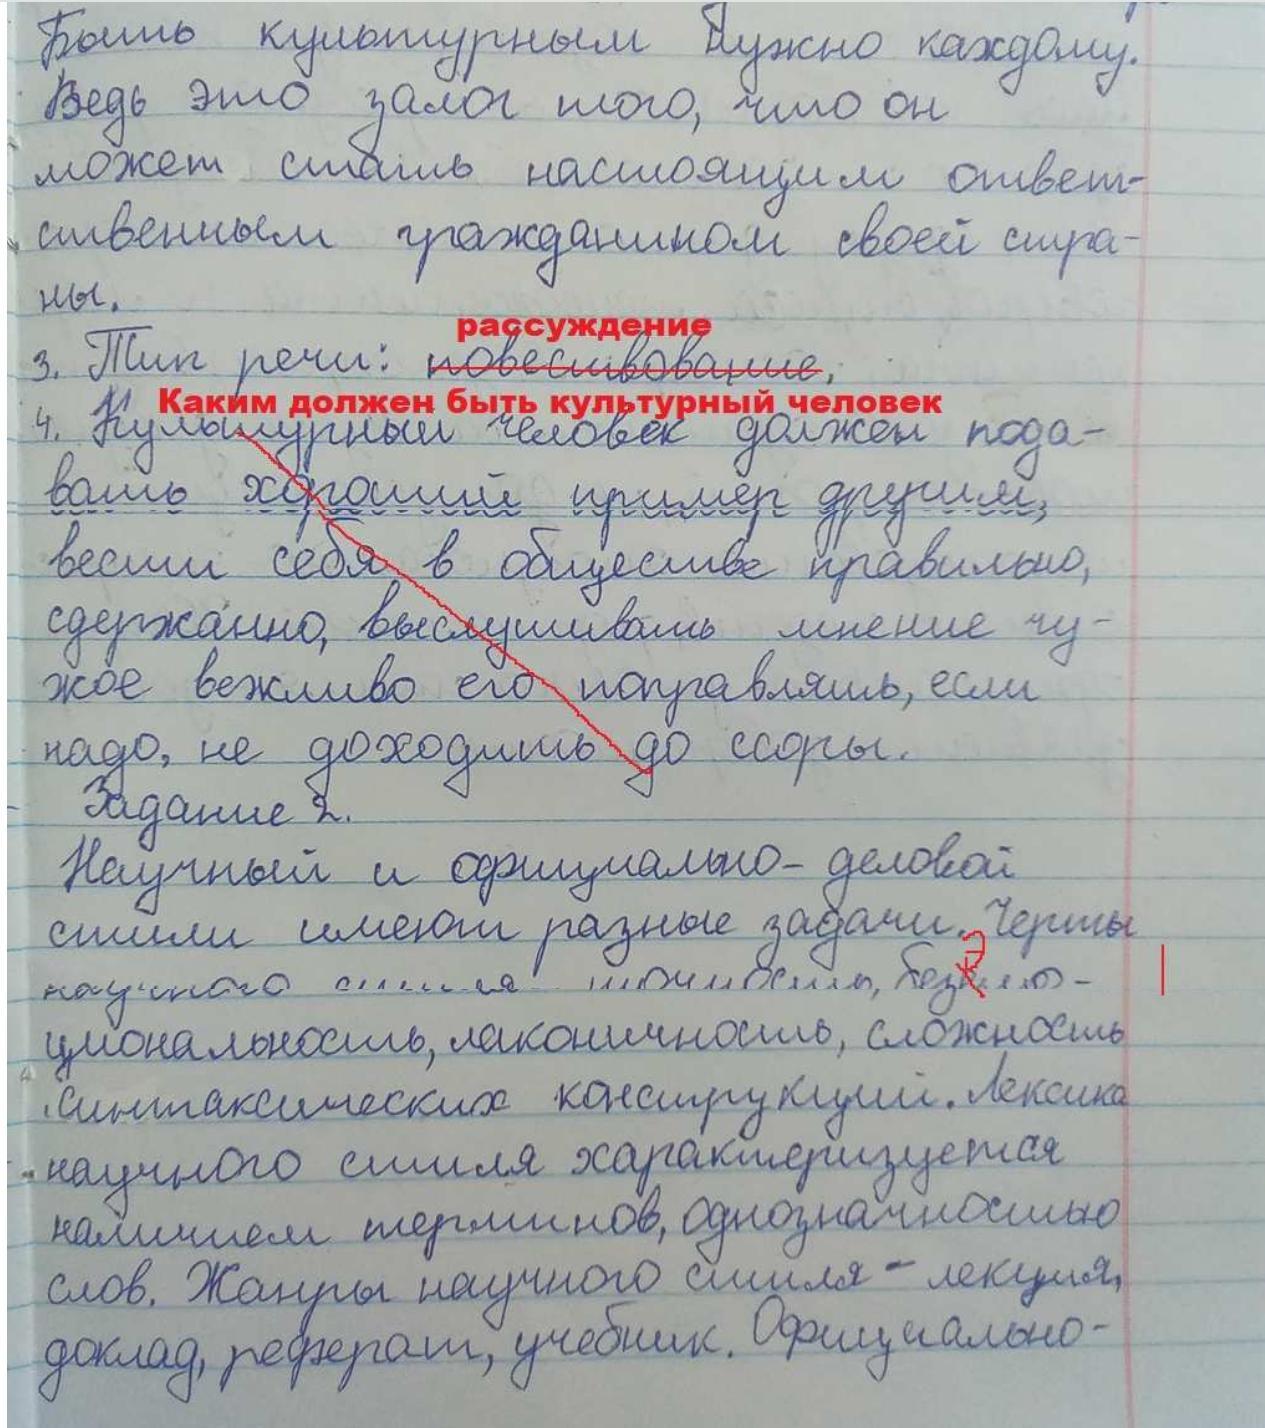 Быть культурным нужно каждому.
Ведь это залог того, что он
может стать настоящим ответ-
ственным гражданином своей стра-
ны.
рассуждение
3. Тип речи: повествование.
Каким должен быть культурный человек
4. Культурный человек должен пода-
вать хороший пример другим,
вести себя в обществе правильно,
сдержанно, выслушивать мнение чу-
жое вежливо его поправлять, если
надо, не доходить до ссоры.
Задание 2.
Научный и официально-деловой
стили имеют разные задачи. Черты
научного стиля точность,
э
циональность, лаконичность, сложность
синтаксических конструкций. Лексика
научного стиля характеризуется
наличием терминов, однозначностью
слов. Жанры научного стиля - лекция,
доклад, реферат, учебник. Официально-